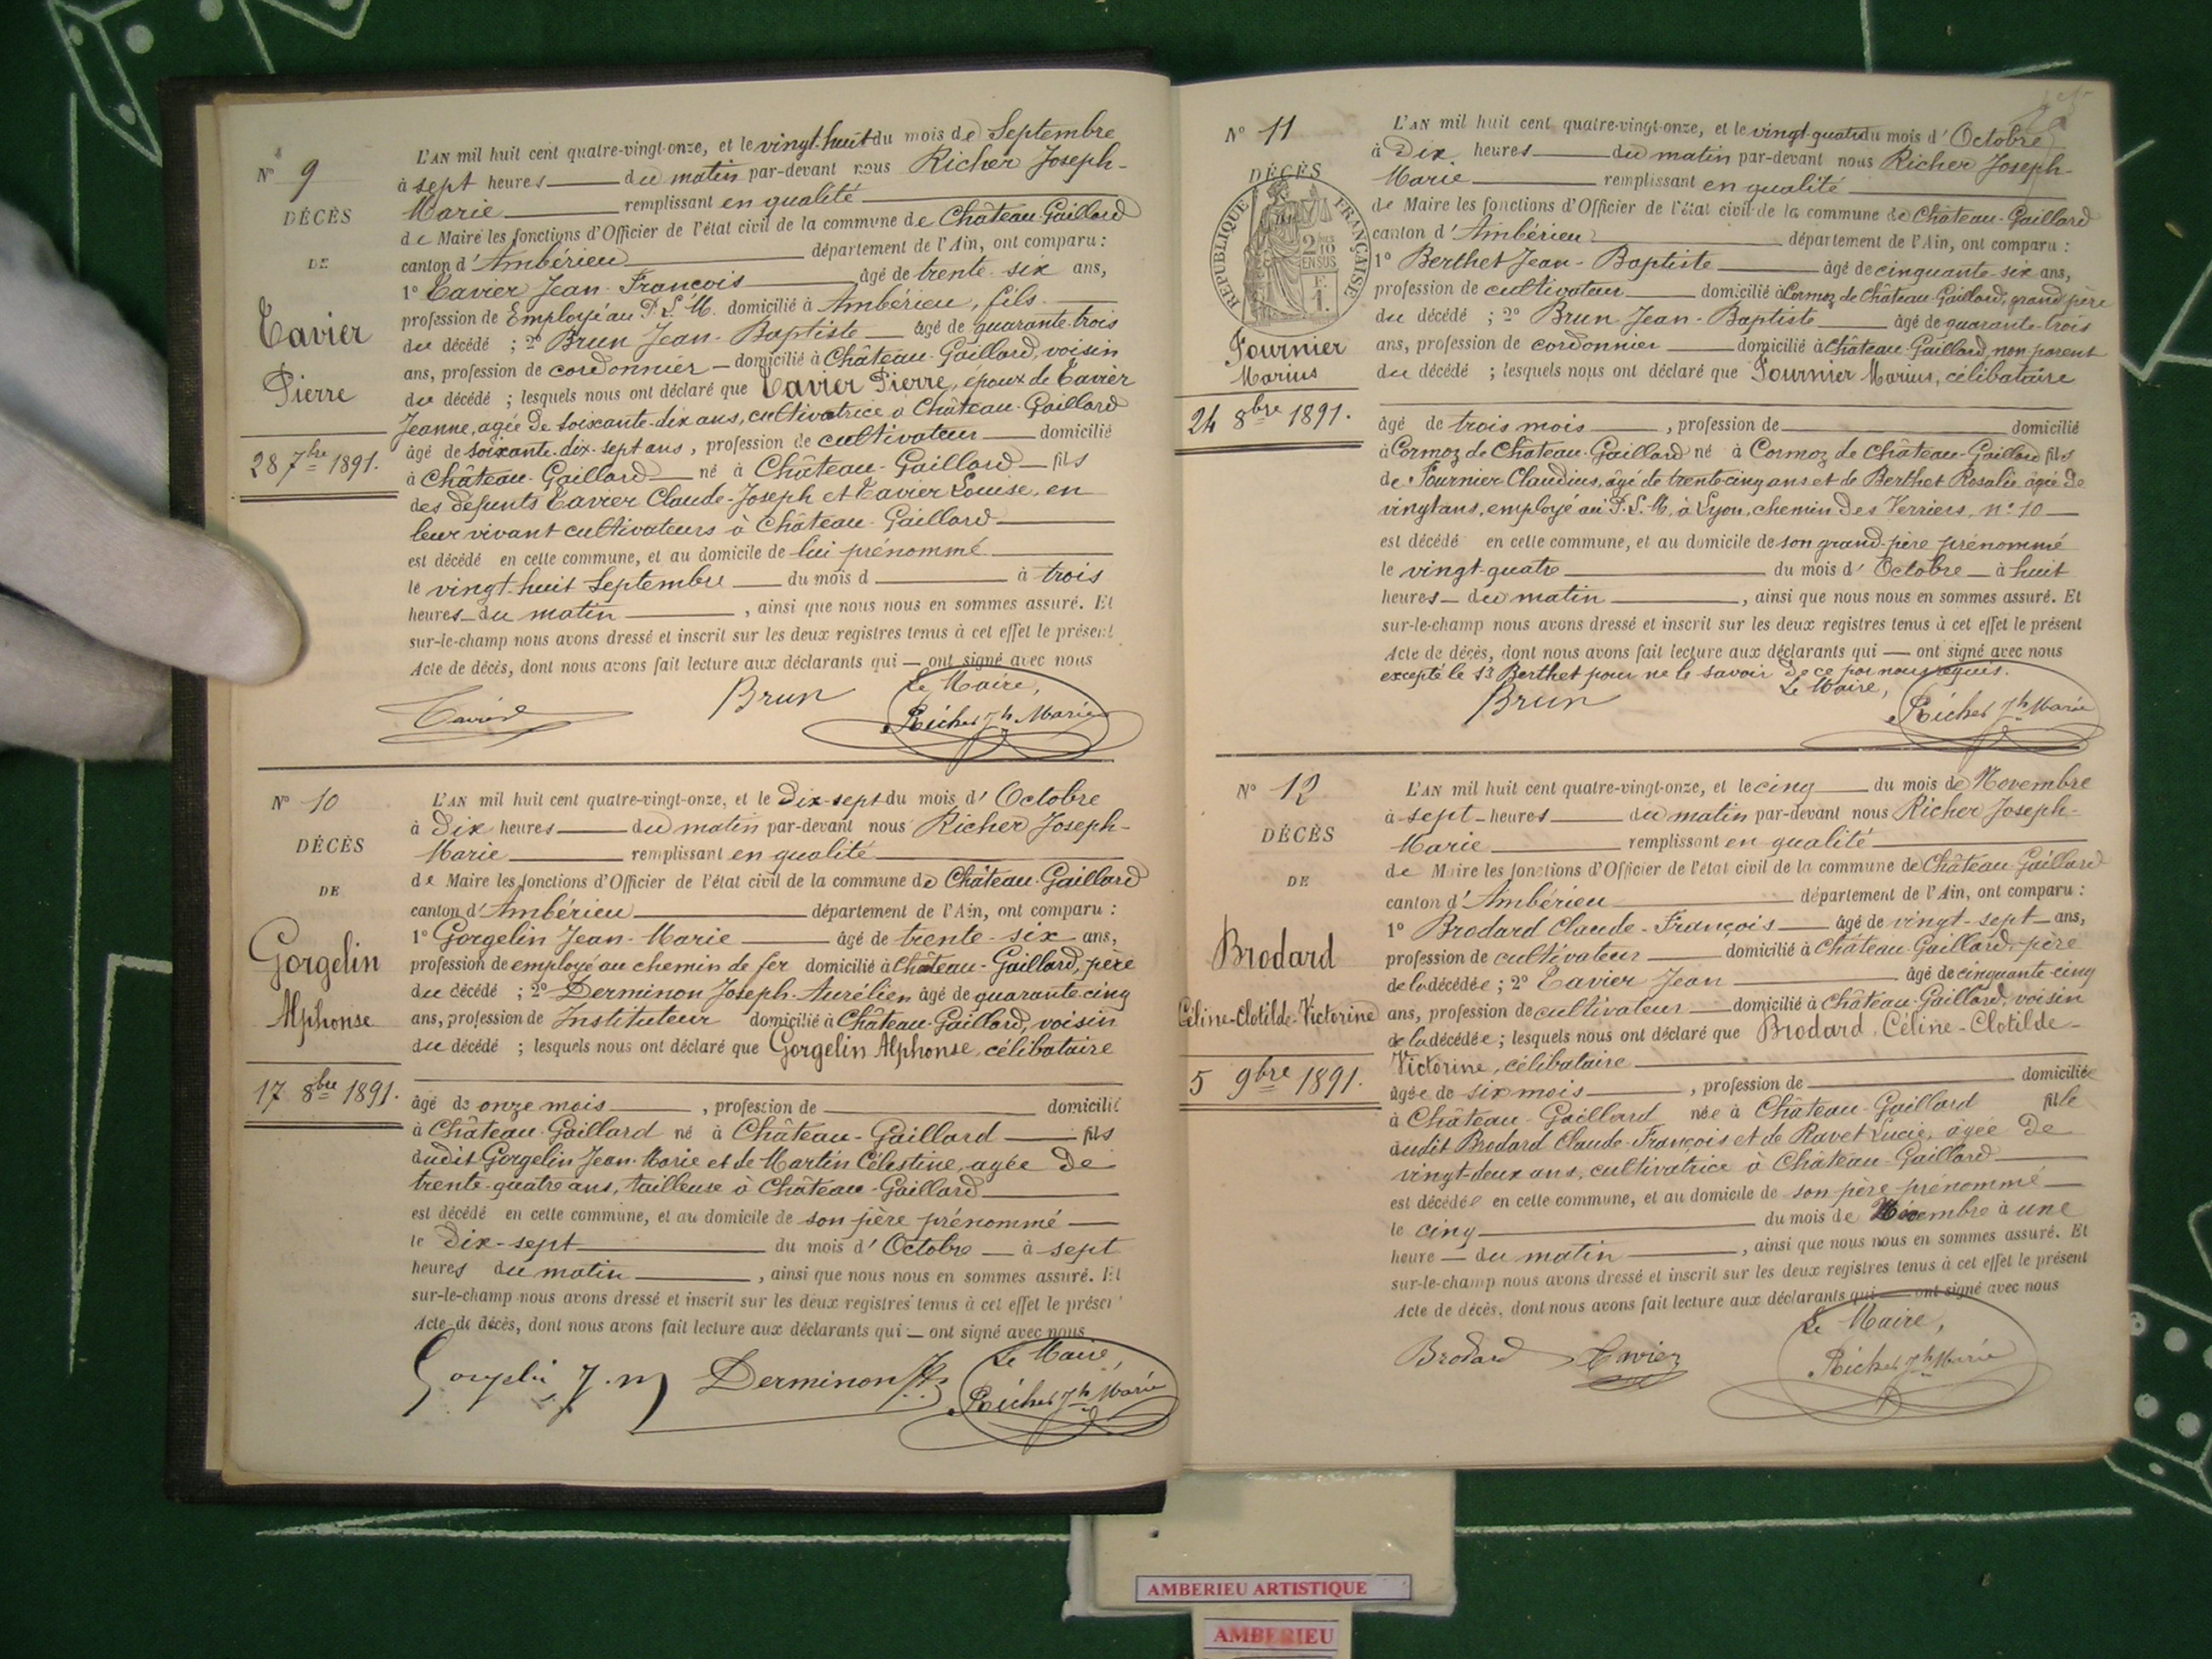 N° 9
DÉCÈS
DE
Tavier
Pierre
28 7bre 1891.
L'AN mil huit cent quatre-vingt-onze, et le vingt-huit du mois de Septembre
à sept heures du matin par-devant nous Richer Joseph-
Marie remplissant en qualité
de Maire les fonctions d'Officier de l'état civil de la commune de Château-Gaillard
canton d'Ambérieu département de l'Ain, ont comparu :
1° Tavier Jean-François âgé de trente-six ans,
profession de Employé au P.L.M. domicilié à Ambérieu, fils
du décédé ; 2° Brun Jean-Baptiste âgé de quarante-trois
ans, profession de cordonnier domicilié à Château-Gaillard, voisin
du décédé ; lesquels nous ont déclaré que Tavier Pierre, époux de Tavier
Jeanne, agée de soixante-dix ans, cultivatrice à Château-Gaillard
âgé de soixante-dix-sept ans, profession de cultivateur domicilié
à Château-Gaillard né à Château-Gaillard fils
des défunts Tavier Claude-Joseph et Tavier Louise, en
leur vivant cultivateurs à Château-Gaillard
est décédé en cette commune, et au domicile de lui prénommé
le vingt-huit Septembre du mois d à trois
heures du matin, ainsi que nous nous en sommes assuré. Et
sur-le-champ nous avons dressé et inscrit sur les deux registres tenus à cet effet le présent
Acte de décès, dont nous avons fait lecture aux déclarants qui — ont signé avec nous
Le Maire,
Brun
Richer Jh Marie
N° 10
DÉCÈS
DE
Gorgelin
Alphonse
17 8bre 1891.
L'AN mil huit cent quatre-vingt-onze, et le Dix-sept du mois d'Octobre
à Dix heures du matin par-devant nous Richer Joseph-
Marie remplissant en qualité
de Maire les fonctions d'Officier de l'état civil de la commune de Château-Gaillard
canton d'Ambérieu département de l'Ain, ont comparu :
1° Gorgelin Jean-Marie âgé de trente-six ans,
profession de employé au chemin de fer domicilié à Château-Gaillard, père
du décédé ; 2° Derminon Joseph-Aurélien âgé de quarante-cinq
ans, profession de Instituteur domicilié à Château-Gaillard, voisin
du décédé ; lesquels nous ont déclaré que Gorgelin Alphonse, célibataire
âgé de onze mois, profession de domicilié
à Château-Gaillard né à Château-Gaillard fils
dudit Gorgelin Jean-Marie et de Martin Célestine, agée de
trente-quatre ans, tailleuse à Château-Gaillard
est décédé en cette commune, et au domicile de son père prénommé
le Dix-sept du mois d'Octobre à sept
heures du matin, ainsi que nous nous en sommes assuré. Et
sur-le-champ nous avons dressé et inscrit sur les deux registres tenus à cet effet le présent
Acte de décès, dont nous avons fait lecture aux déclarants qui — ont signé avec nous
Le Maire,
Gorgelin J.M Derminon
Richer Jh Marie
N° 11
DÉCÈS
RÉPUBLIQUE FRANÇAISE
2/10 EN SUS
F. 1.
Fournier
Marius
24 8bre 1891.
L'AN mil huit cent quatre-vingt-onze, et le vingt-quatre du mois d'Octobre
à Dix heures du matin par-devant nous Richer Joseph-
Marie remplissant en qualité
de Maire les fonctions d'Officier de l'état civil de la commune de Château-Gaillard
canton d'Ambérieu département de l'Ain, ont comparu :
1° Berthet Jean-Baptiste âgé de cinquante-six ans,
profession de cultivateur domicilié à Cormoz de Château-Gaillard, grand père
du décédé ; 2° Brun Jean-Baptiste âgé de quarante-trois
ans, profession de cordonnier domicilié à Château-Gaillard, non parent
du décédé ; lesquels nous ont déclaré que Fournier Marius, célibataire
âgé de trois mois, profession de domicilié
à Cormoz de Château-Gaillard né à Cormoz de Château-Gaillard fils
de Fournier Claudius, âgé de trente-cinq ans et de Berthet Rosalie agée de
vingt ans, employé au P.L.M. à Lyon, chemin des Verriers, n° 10
est décédé en cette commune, et au domicile de son grand-père prénommé
le vingt-quatre du mois d'Octobre à huit
heures du matin, ainsi que nous nous en sommes assuré. Et
sur-le-champ nous avons dressé et inscrit sur les deux registres tenus à cet effet le présent
Acte de décès, dont nous avons fait lecture aux déclarants qui — ont signé avec nous
excepté le Sr Berthet pour ne le savoir de ce par nous requis.
Le Maire,
Brun
Richer Jh Marie
N° 12
DÉCÈS
DE
Brodard
Céline-Clotilde-Victorine
5 9bre 1891.
L'AN mil huit cent quatre-vingt-onze, et le cinq du mois de Novembre
à sept heures du matin par-devant nous Richer Joseph-
Marie remplissant en qualité
de Maire les fonctions d'Officier de l'état civil de la commune de Château-Gaillard
canton d'Ambérieu département de l'Ain, ont comparu :
1° Brodard Claude-François âgé de vingt-sept ans,
profession de cultivateur domicilié à Château-Gaillard, père
de la décédée ; 2° Tavier Jean âgé de cinquante-cinq
ans, profession de cultivateur domicilié à Château-Gaillard, voisin
de la décédée ; lesquels nous ont déclaré que Brodard Céline-Clotilde-
Victorine, célibataire
âgée de six mois, profession de domiciliée
à Château-Gaillard née à Château-Gaillard fille
dudit Brodard Claude-François et de Ravet Lucie, agée de
vingt-deux ans, cultivatrice à Château-Gaillard
est décédée en cette commune, et au domicile de son père prénommé
le cinq du mois de Novembre à une
heure du matin, ainsi que nous nous en sommes assuré. Et
sur-le-champ nous avons dressé et inscrit sur les deux registres tenus à cet effet le présent
Acte de décès, dont nous avons fait lecture aux déclarants qui — ont signé avec nous
Le Maire,
Brodard Tavier
Richer Jh Marie
AMBERIEU ARTISTIQUE
AMBERIEU